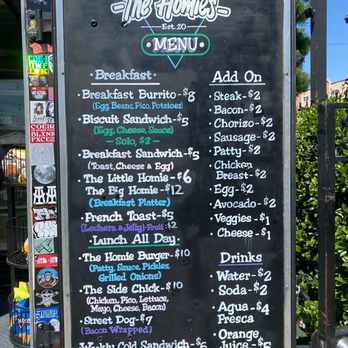 The Homies
Est. 20
MENU
Breakfast
Breakfast Burrito - $8
(Egg, Beans, Pico, Potatoes)
Biscuit Sandwich - $5
(Egg, Cheese, Sauce)
— Solo, $2 —
Breakfast Sandwich - $5
(Toast, Cheese & Egg)
The Little Homie - $6
The Big Homie - $12
(Breakfast Platter)
French Toast - $5
(Lechera & Jelly) Fruit - $2
Lunch All Day
The Homie Burger - $10
(Patty, Sauce, Pickles,
Grilled Onions)
The Side Chick - $10
(Chicken, Pico, Lettuce,
Mayo, Cheese, Bacon)
Street Dog - $7
(Bacon Wrapped)
Weekly Cold Sandwich - $5
Add On
Steak - $2
Bacon - $2
Chorizo - $2
Sausage - $2
Patty - $2
Chicken
Breast - $2
Egg - $2
Avocado - $2
Veggies - $1
Cheese - $1
Drinks
Water - $2
Soda - $2
Agua - $4
Fresca
Orange
Juice - $5